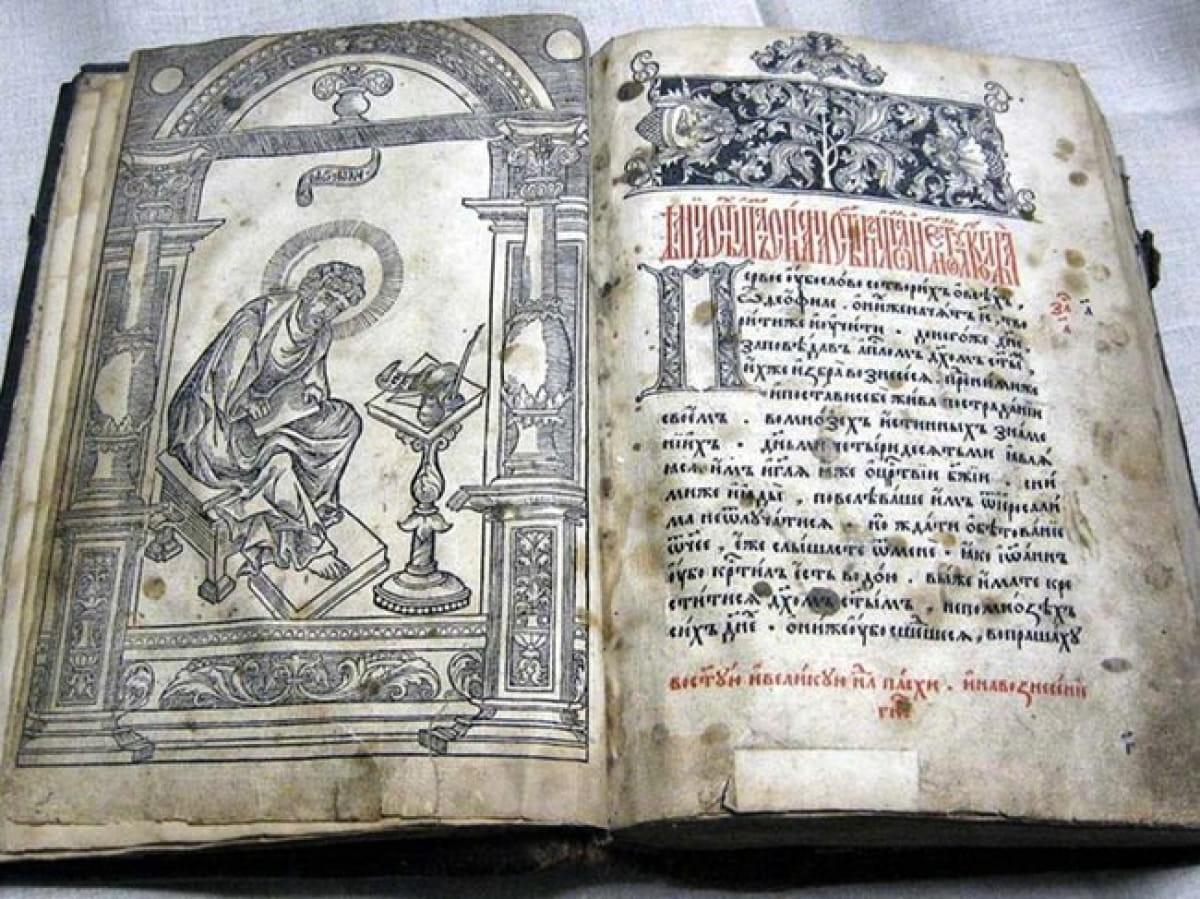 Первое оубо слово сотворихъ о всѣхъ,
ѡ ѳеофиле. о нихже начатъ і҃с тво
рити же и оучити. до негоже дн҃е,
заповѣдавъ апⷭ҇лѡмъ дх҃омъ ст҃ымъ
ихже избра вознесеся. пред нимиже
и постави себе жива по страданїи
своемъ. во мнозѣхъ истинныхъ знаме
нїихъ. дньми четыридесятьми явля
яся имъ и гл҃я яже о црⷭ҇твїи бж҃їи. с ни
миже и яды, повелѣваше имъ ѿ іерⷭ҇али
ма не ѿлучатися. но ждати обѣтованїе
ѿч҃ее, еже слышасте ѿ мене. яко іѡаннъ
оубо крⷭ҇тилъ есть водою. вы же имате кре
ститися дх҃омъ ст҃ымъ, не по мнозѣхъ
сихъ дн҃е. они же оубо сшедшеся, вопрашаху
во ст҃ую и великую нлⷣю пасхи. и на вознесенїе
гн҃е